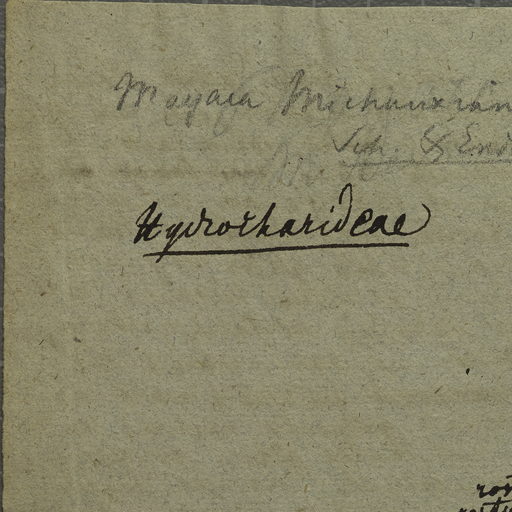 Mayaca Michauxian
Sch. & End
Hydrocharideae